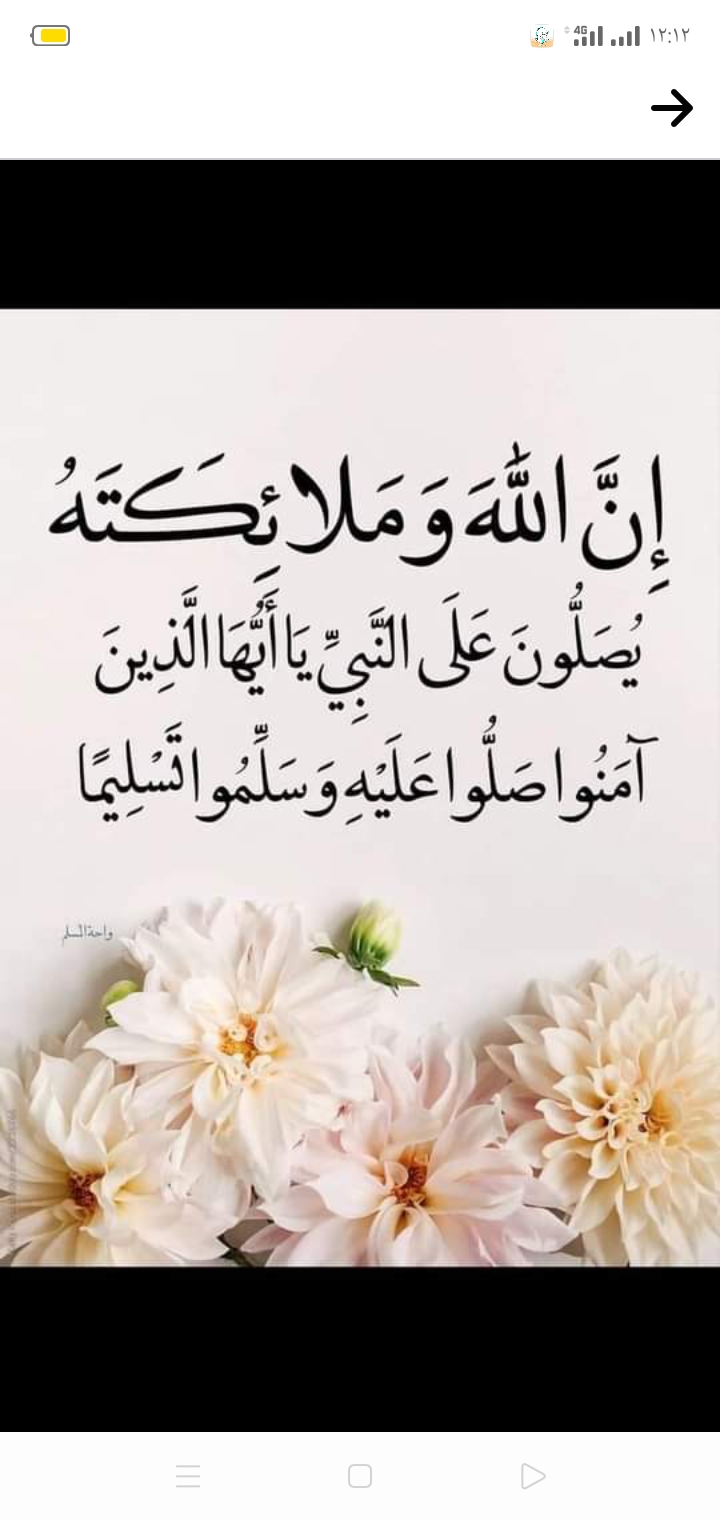 ١٢:١٢
4G
إِنَّ اللَّهَ وَمَلائِكَتَهُ
يُصَلُّونَ عَلَى النَّبِيِّ يَا أَيُّهَا الَّذِينَ
آمَنُوا صَلُّوا عَلَيْهِ وَسَلِّمُوا تَسْلِيمًا
واحة المسلم